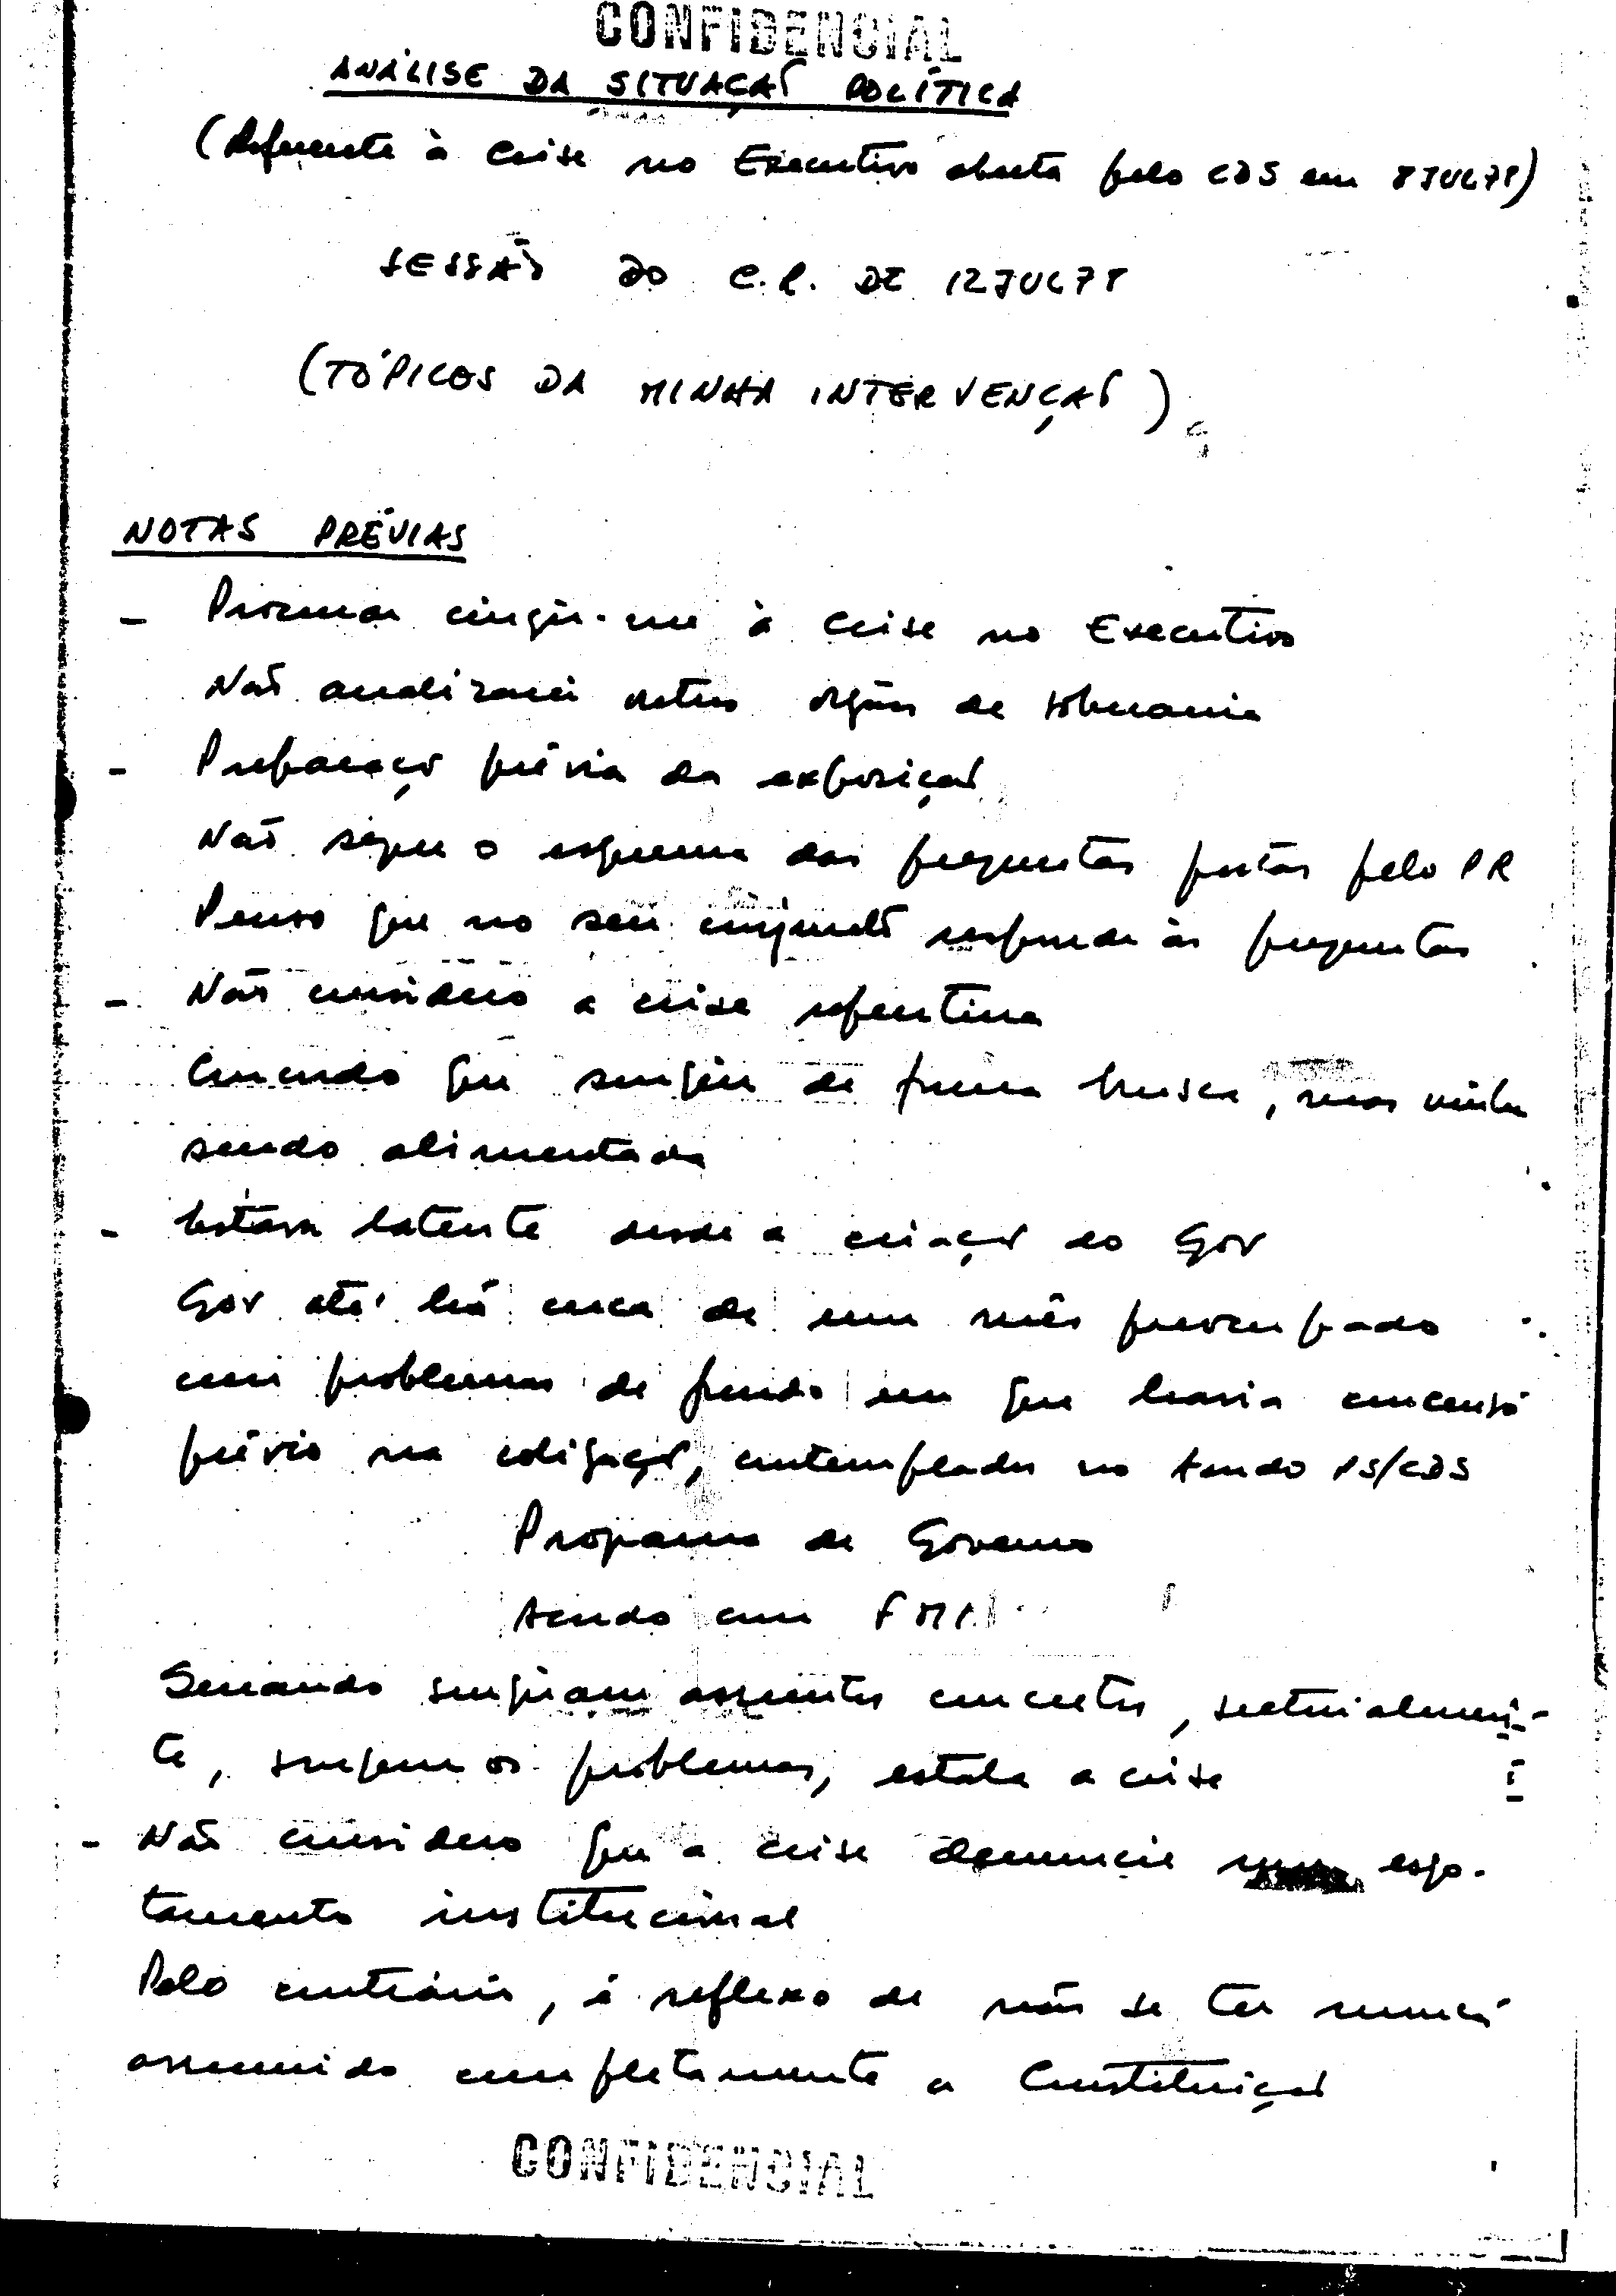 CONFIDENCIAL
ANÁLISE DA SITUAÇÃO POLÍTICA
(Referente à crise no Executivo aberta pelo CDS em 8JUL78)
SESSÃO DO C.R. DE 12JUL78
(TÓPICOS DA MINHA INTERVENÇÃO)
NOTAS PRÉVIAS
- Procurar cingir-me à crise no Executivo
Não analizarei outros orgãos de soberania
- Preparação prévia da exposição
Não segue o esquema das perguntas postas pelo PR
Penso que no seu conjunto responde às perguntas
- Não considero a crise repentina
Concordo que surgiu de forma brusca, mas vinha
sendo alimentada
- Estava latente desde a criação do Gov
Gov até há cerca de um mês preocupado
com problemas de fundo em que havia concenso
prévio na coligação, contemplados no Acordo PS/CDS
Programa de Governo
Acordo com FMI
Quando surgiram assuntos concretos, sectorialmen-
te, surgem os problemas, estala a crise
- Não considero que a crise denuncie esgo-
tamento institucional
Pelo contrário, é reflexo de não se ter nunca
assumido completamente a Constituição
CONFIDENCIAL